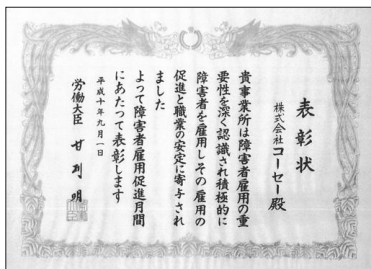 表彰状
株式会社コーセー殿
貴事業所は障害者雇用の重
要性を深く認識され積極的に
障害者を雇用しその雇用の
促進と職業の安定に寄与され
ました
よって障害者雇用促進月間
にあたって表彰します
平成十年九月一日
労働大臣 甘利明